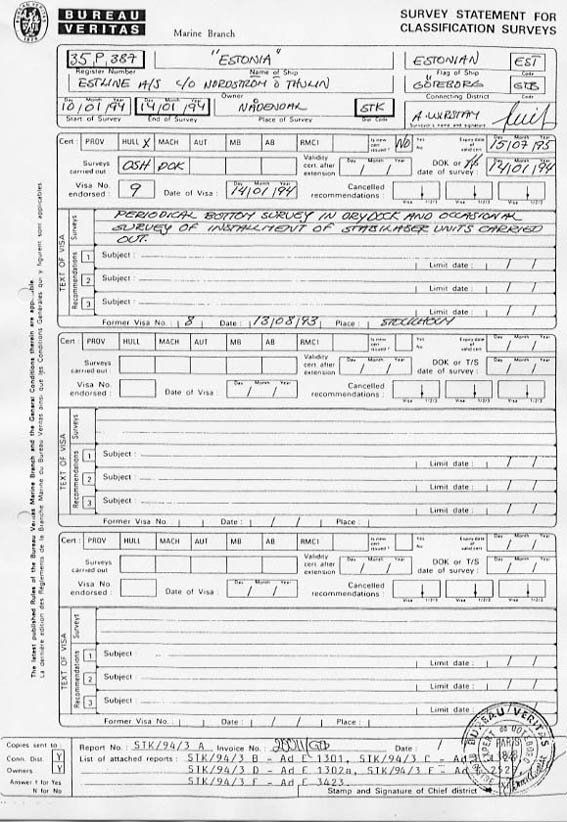 BUREAU
VERITAS
Marine Branch
SURVEY STATEMENT FOR
CLASSIFICATION SURVEYS
35,P,387 "ESTONIA" ESTONIAN EST
Register Number Name of Ship Flag of Ship Code
ESTLINE A/S C/O NORDSTRÖM & THULIN GÖTEBORG GTB
Owner Connecting District Code
Day Month Year Day Month Year
10/01/94 14/01/94 NÅDENDAL STK
Start of Survey End of Survey Place of Survey Dist Code Surveyor's name and signature
Cert : PROV HULL X MACH AUT MB AB RMCI Is new cert issued? No Expiry date of valid cert Day Month Year 15/07/95
Surveys carried out OSH DOK Validity cert. after extension DOK or T/S date of survey : 14/01/94
Visa No. endorsed : 9 Date of Visa : Day Month Year 14/01/94 Cancelled recommendations : Visa 1/2/3 Visa 1/2/3 Visa 1/2/3
TEXT OF VISA
Surveys
PERIODICAL BOTTOM SURVEY IN DRYDOCK AND OCCASIONAL
SURVEY OF INSTALLMENT OF STABILASER UNITS CARRIED
OUT.
Recommendations
1 Subject : Limit date : / /
2 Subject : Limit date : / /
3 Subject : Limit date : / /
Former Visa No. 8 Date : 13/08/93 Place : STOCKHOLM
Cert : PROV HULL MACH AUT MB AB RMCI Is new cert issued? Yes No Expiry date of valid cert Day Month Year / /
Surveys carried out Validity cert. after extension / / DOK or T/S date of survey : / /
Visa No. endorsed : Date of Visa : Day Month Year / / Cancelled recommendations : Visa 1/2/3 Visa 1/2/3 Visa 1/2/3
TEXT OF VISA
Surveys
Recommendations
1 Subject : Limit date : / /
2 Subject : Limit date : / /
3 Subject : Limit date : / /
Former Visa No. Date : / / Place :
Cert : PROV HULL MACH AUT MB AB RMCI Is new cert issued? Yes No Expiry date of valid cert Day Month Year / /
Surveys carried out Validity cert. after extension / / DOK or T/S date of survey : / /
Visa No. endorsed : Date of Visa : Day Month Year / / Cancelled recommendations : Visa 1/2/3 Visa 1/2/3 Visa 1/2/3
TEXT OF VISA
Surveys
Recommendations
1 Subject : Limit date : / /
2 Subject : Limit date : / /
3 Subject : Limit date : / /
Former Visa No. Date : / / Place :
The latest published Rules of the Bureau Veritas Marine Branch and the General Conditions therein are applicable.
La dernière édition des Règlements de la Branche Marine du Bureau Veritas ainsi que les Conditions Générales qui y figurent sont applicables.
Copies sent to :
Conn. Dist. Y
Owners Y
Answer Y for Yes
N for No
Report No. : STK/94/3 A Invoice No. : Date : /
List of attached reports : STK/94/3 B - Ad E 1301, STK/94/3 C - Ad
STK/94/3 D - Ad E 1302a, STK/94/3 E - Ad
STK/94/3 F - Ad E 3423.
Stamp and Signature of Chief district
BUREAU VERITAS
PARIS